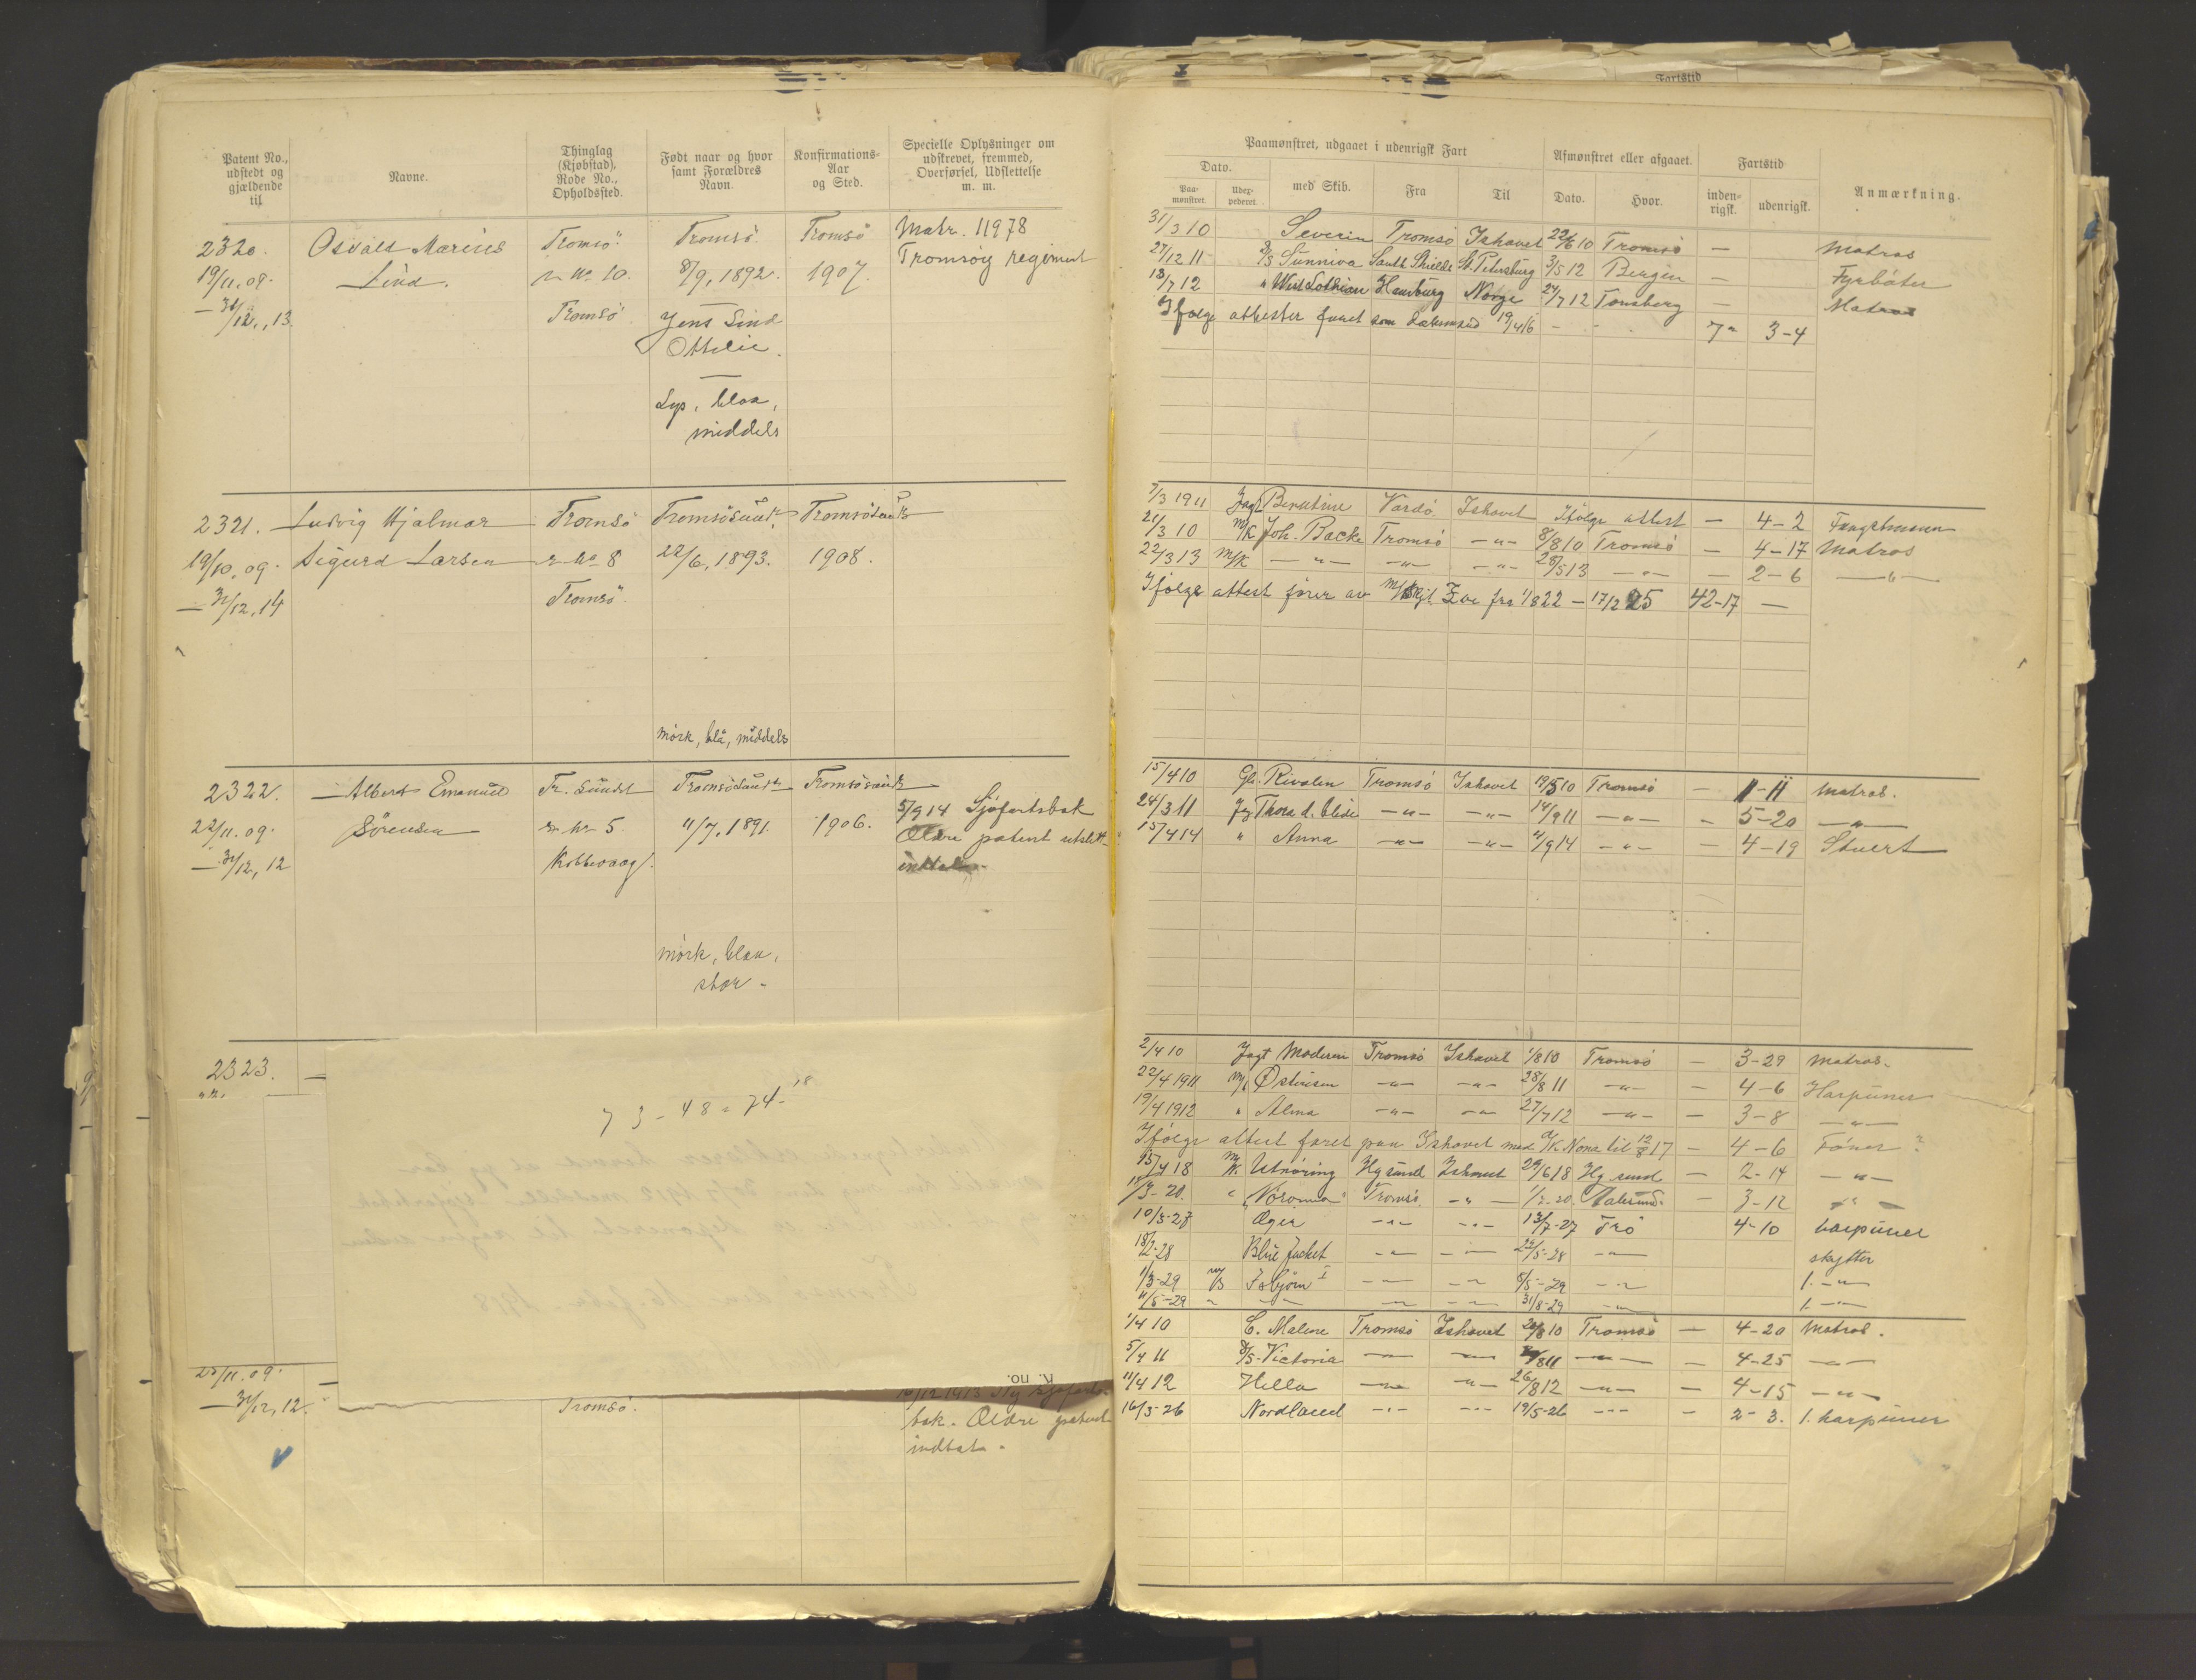 Patent No., udstedt og gjældende til
Navne.
Thinglag (Kjøbstad), Rode No., Opholdssted.
Født naar og hvor samt Forældres Navn.
Konfirmations-Aar og Sted.
Specielle Oplysninger om udskrevet, fremmed, Overførsel, Udslettelse m. m.
2320.
19/11.09.
— 31/12, 13
Osvald Marius
Lind.
Tromsö
r. No. 10.
Tromsö
Tromsö
8/9, 1892.
Jens Lind
Ottilie.
Lys, blaa,
middels
Tromsö
1907.
Matr. 11978
Tromsøy regiment
2321.
19/10.09.
— 31/12, 14
Ludvig Hjalmar
Sigurd Larsen
Tromsö
r. No 8
Tromsö
Tromsösund
22/6, 1893.
mörk, blå, middels
Tromsösund
1908.
2322.
22/11.09.
— 31/12, 12
Albert Emanuel
Sörensen
Tr. Sund
r. No 5.
Kobbevaag.
Tromsösund
11/7, 1891.
mörk, blaa,
stor.
Tromsösund
1906.
5/9 14 Sjøfartsbok
Ældre patent utslett
2323.
73-48=74-18
K. no.
23/11.09.
— 31/12, 12.
Tromsö.
bok. Ældre patent
indtat.
Fartstid
Paamønstret, udgaaet i udenrigsk Fart
Afmønstret eller afgaaet.
Fartstid
Anmærkning.
Dato.
Paa-mønstret.
Udex-pederet.
med Skib.
Fra
Til
Dato.
Hvor.
inden-rigsk.
udenrigsk.
31/3 10 Severin Tromsö Ishavet 22/6 10 Tromsö — Matros
27/12 11 S/S Sunniva South Shields St. Petersburg 3/5 12 Bergen — Fyrböter
13/7 12 " West Lothian Hamburg Norge 24/7 12 Tönsberg — Matros
Ifølge attester faret som 19/4 16 - - 7 " 3-4
7/3 1911 Jagt Vardö Ishavet Ifølge attest — 4-2 Fangstmann
21/3 10 M/K Joh. Backe Tromsö —"— 8/8 10 Tromsö — 4-17 Matros
22/3 13 M/K —"— —"— —"— 28/5 13 —"— — 2-6 —"—
Ifølge attest fører av M/Skjt. Zoe fra 1/8 22 — 17/2 25 42-17 —
15/4 10 Gl. Rivalen Tromsö Ishavet 19/5 10 Tromsö — 1-11 Matros.
24/3 11 Jg Thora d. blide —"— —"— 14/9 11 —"— - 5-20 —"—
15/4 14 " Anna —"— —"— 4/9 14 —"— — 4-19 Stuert
2/4 10 Jagt Moderen Tromsö Ishavet 1/8 10 Tromsö — 3-29 Matros.
22/4 1911 M/K Østensen —"— —"— 28/8 11 —"— — 4-6 Harpuner
19/4 1912 " Alma —"— —"— 27/7 12 —"— — 3-8 —"—
Ifølge attest faret paa Ishavet med M/K Nora til 12/8 17 — 4-6 Förer ?
15/4 18 M/K. Utnöring Hg sund Ishavet 29/6 18 Hg sund — 2-14 —"—
"Noronna" Tromsö —"— Aalesund. — 3-12 —"—
10/3-27 Ægir —"— —"— 13/7-27 Trö 4-10 harpuner
18/2-28 Blue Jacket —"— —"— 22/5-28 —"— skytter
1/3-29 M/S Isbjørn I —"— —"— 8/5-29 —"— 1. —"—
11/5-29 " —"— —"— —"— 31/8-29 —"— 1. —"—
1/4 10 C. Malene Tromsö Ishavet 20/8 10 Tromsö — 4-20 Matros.
5/4 11 S/S. Victoria —"— —"— /8 11 —"— — 4-25 —"—
11/4 12 Hella —"— —"— 26/8 12 —"— — 4-15 —"—
16/3-26 Nordland —"— —"— 19/5-26 —"— — 2-3. 1. harpuner